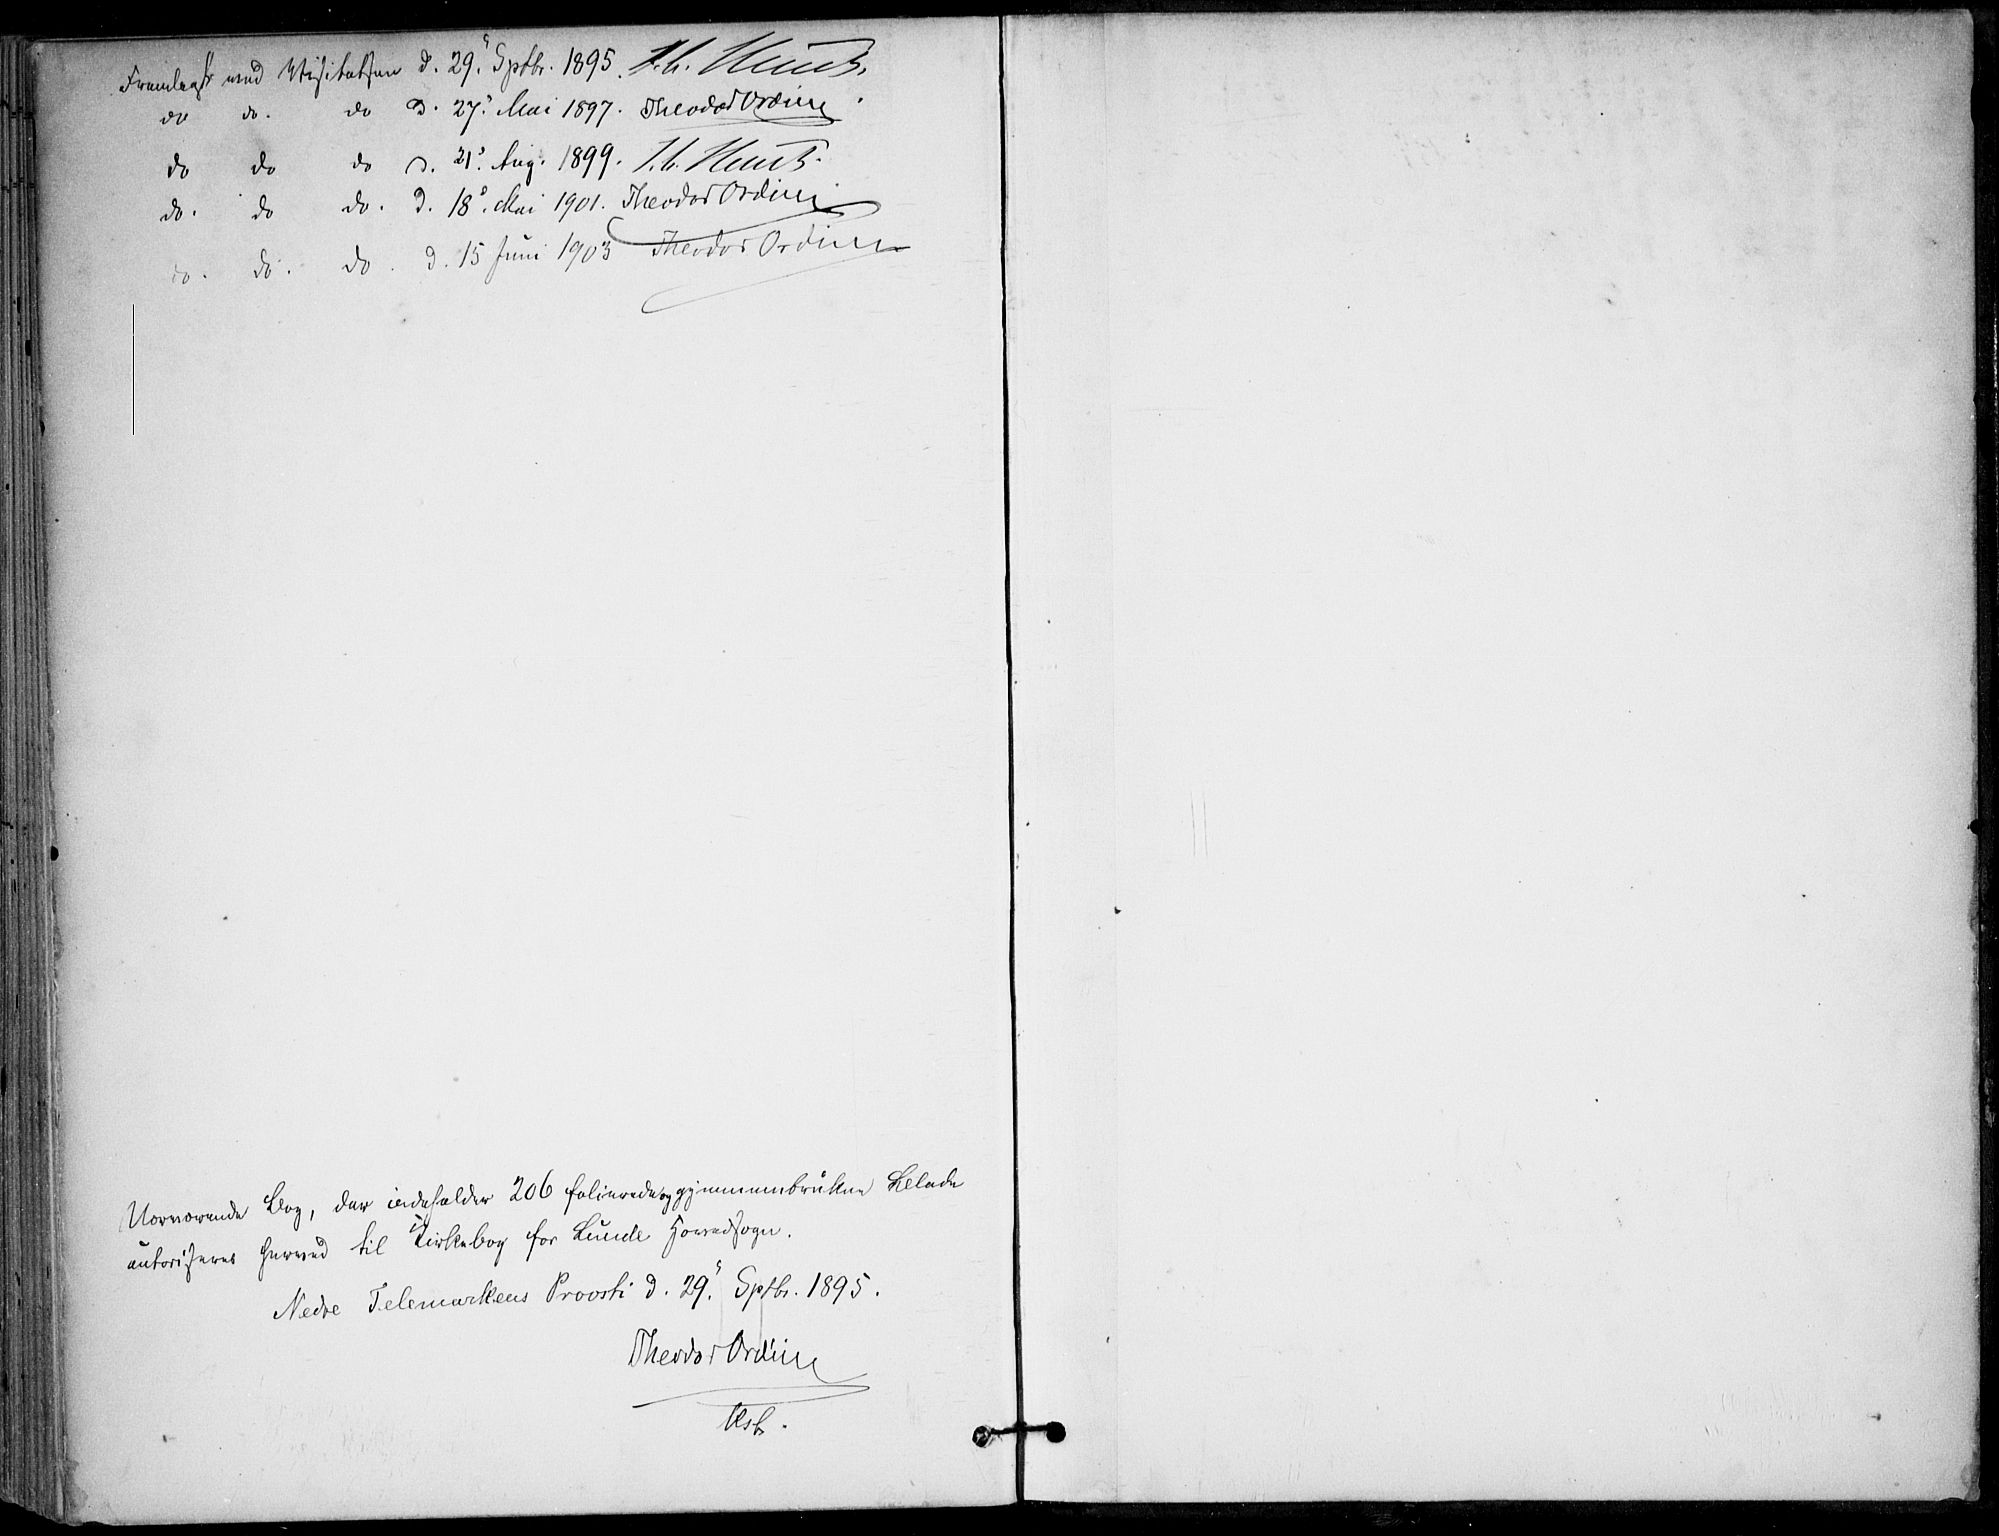 Fremlagt ved Visitatsen d. 29.' Sptbr. 1895.
do do. do d. 27.' Mai 1897. Theodor Ording.
do do do d. 21.' Aug. 1899.
do. do do. d. 18.' Mai 1901. Theodor Ording
do. do. do. d. 15 Juni 1903 Theodor Ording
Nærværende Bog, der indeholder 206 folierede og gjennembrukne Blade
autoriseres herved til Kirkebog for Lunde Hovedsogn.
Nedre Telemarkens Provsti d. 29.' Sptbr. 1895.
Theodor Ording